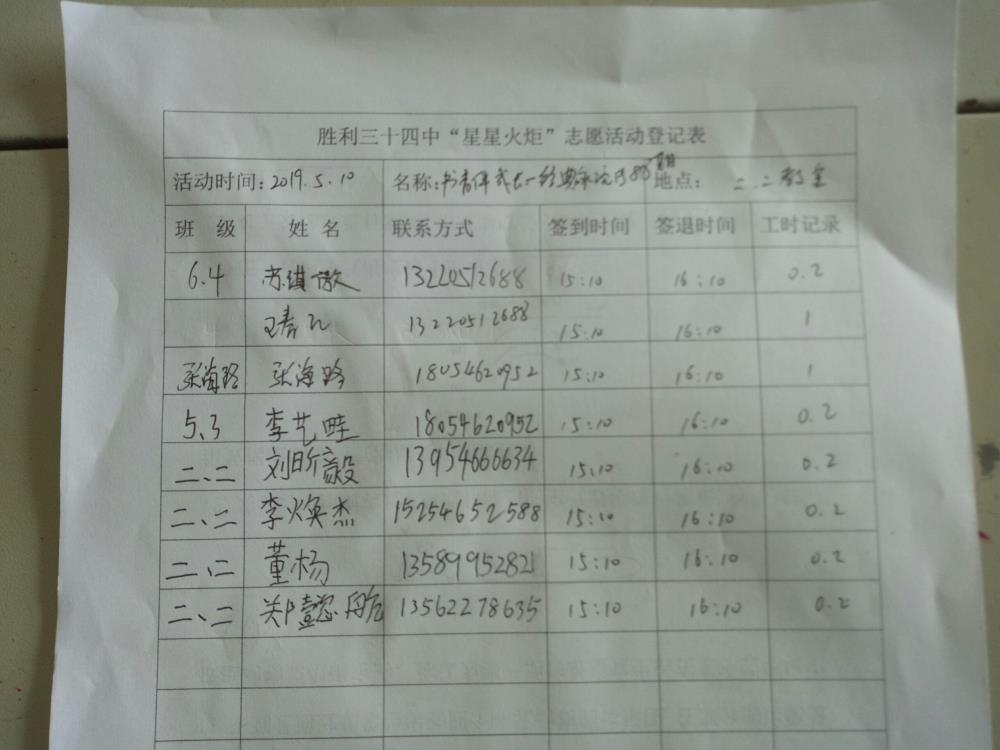 胜利三十四中“星星火炬”志愿活动登记表
活动时间:2019.5.10 名称:书香伴成长一经典 地点: 二.二教室
班 级 姓 名 联系方式 签到时间 签退时间 工时记录
6.4 苏琪 13220512688 15:10 16:10 0.2
王 13220512688 15:10 16:10 1
张海路 张海路 18054620952 15:10 16:10 1
5.3 李艺畦 18054620952 15:10 16:10 0.2
二、二 刘昕毅 13954666634 15:10 16:10 0.2
二、二 李焕杰 15254652588 15:10 16:10 0.2
二、二 董杨 13589952821 15:10 16:10 0.2
二、二 郑懿 13562278635 15:10 16:10 0.2